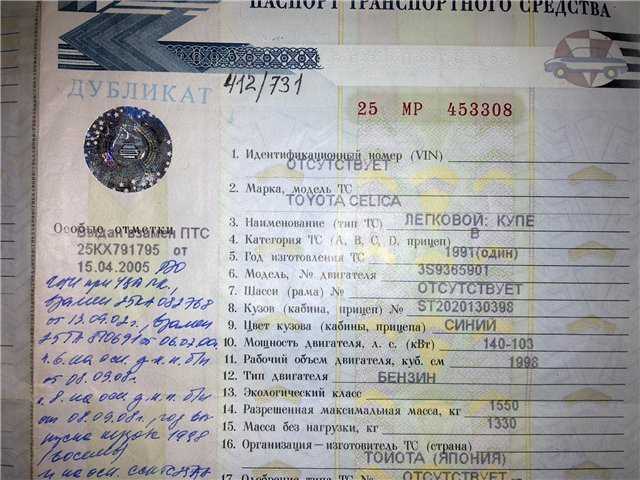 ПАСПОРТ ТРАНСПОРТНОГО СРЕДСТВА
ДУБЛИКАТ
412/731
25 МР 453308
1. Идентификационный номер (VIN)
ОТСУТСТВУЕТ
2. Марка, модель ТС
TOYOTA CELICA
3. Наименование (тип ТС) ЛЕГКОВОЙ: КУПЕ
4. Категория ТС (A, B, C, D, прицеп) B
5. Год изготовления ТС 1991(один)
6. Модель, № двигателя 3S9365901
7. Шасси (рама) № ОТСУТСТВУЕТ
8. Кузов (кабина, прицеп) № ST2020130398
9. Цвет кузова (кабины, прицепа) СИНИЙ
10. Мощность двигателя, л. с. (кВт) 140-103
11. Рабочий объем двигателя, куб. см 1998
12. Тип двигателя БЕНЗИН
13. Экологический класс
14. Разрешенная максимальная масса, кг 1550
15. Масса без нагрузки, кг 1330
16. Организация—изготовитель ТС (страна)
ТОЙОТА (ЯПОНИЯ)
17. Одобрение типа ТС № ОТСУТСТВУЕТ
Особые отметки
Выдан взамен ПТС
25КХ791795 от
15.04.2005
взамен 25КА082768
от 13.09.02г., взамен
от 06.02.00
от 08.09.08г.
от 08.09.08г., год вы
пуска кузова 1998
(восемь)